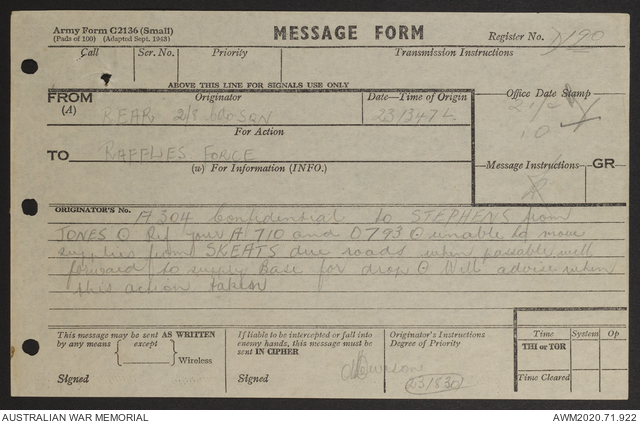 Army Form C2136 (Small)
(Pads of 100) (Adapted Sept. 1943)
MESSAGE FORM
Register No. 190
Call Ser. No. Priority Transmission Instructions
ABOVE THIS LINE FOR SIGNALS USE ONLY
FROM (A) Originator Date—Time of Origin Office Date Stamp
REAR 2/8 231347L
For Action
TO RAFFLES FORCE
(w) For Information (INFO.) Message Instructions GR
ORIGINATOR'S No. A 304 Confidential to STEPHENS from
JONES O Ref your A 710 and O793 O unable to move
supplies from SKEATS due roads when passable will
forward to supply Base for drop O Will advise when
this action taken
This message may be sent AS WRITTEN
by any means except
Wireless
Signed
If liable to be intercepted or fall into
enemy hands, this message must be
sent IN CIPHER
Signed
Originator's Instructions
Degree of Priority
231830
Time System Op
THI or TOR
Time Cleared
AUSTRALIAN WAR MEMORIAL AWM2020.71.922